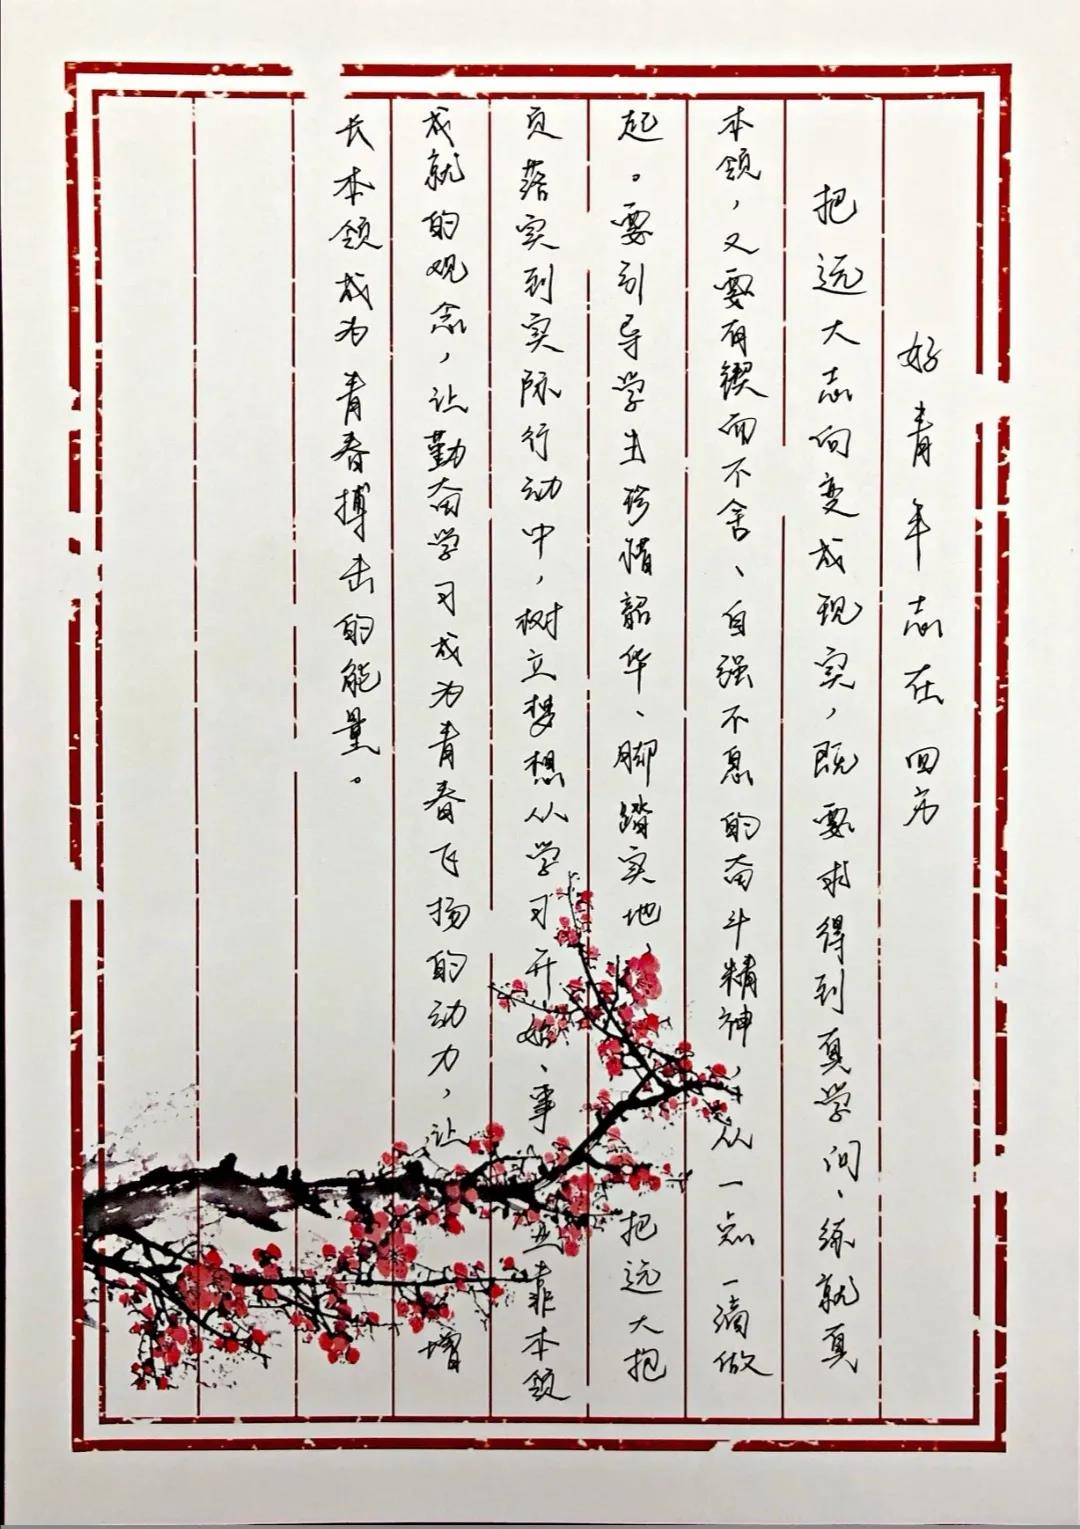 好青年志在四方
把远大志向变成现实，既要求得到真学问、练就真
本领，又要有锲而不舍、自强不息的奋斗精神，从一点一滴做
起。要引导学生珍惜韶华、脚踏实地、把远大抱
负落实到实际行动中，树立梦想从学习开始、事业靠本领
成就的观念，让勤奋学习成为青春飞扬的动力，让增
长本领成为青春搏击的能量。